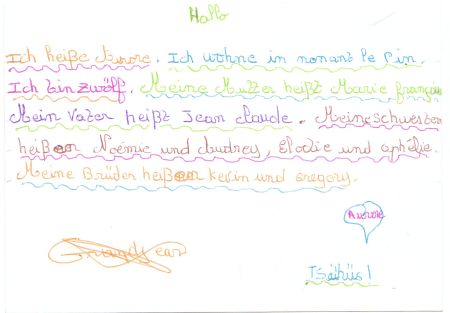 Hallo
Ich heiße Aurore. Ich wohne in nonant le Pin.
Ich bin zwölf. Meine Mutter heißt Marie françoise
Mein Vater heißt Jean claude. Meine schwestern
heißen Noémie und Audrey, Elodie und ophélie.
Meine Brüder heißen kevin und gregory.
Aurore
Tschüs!